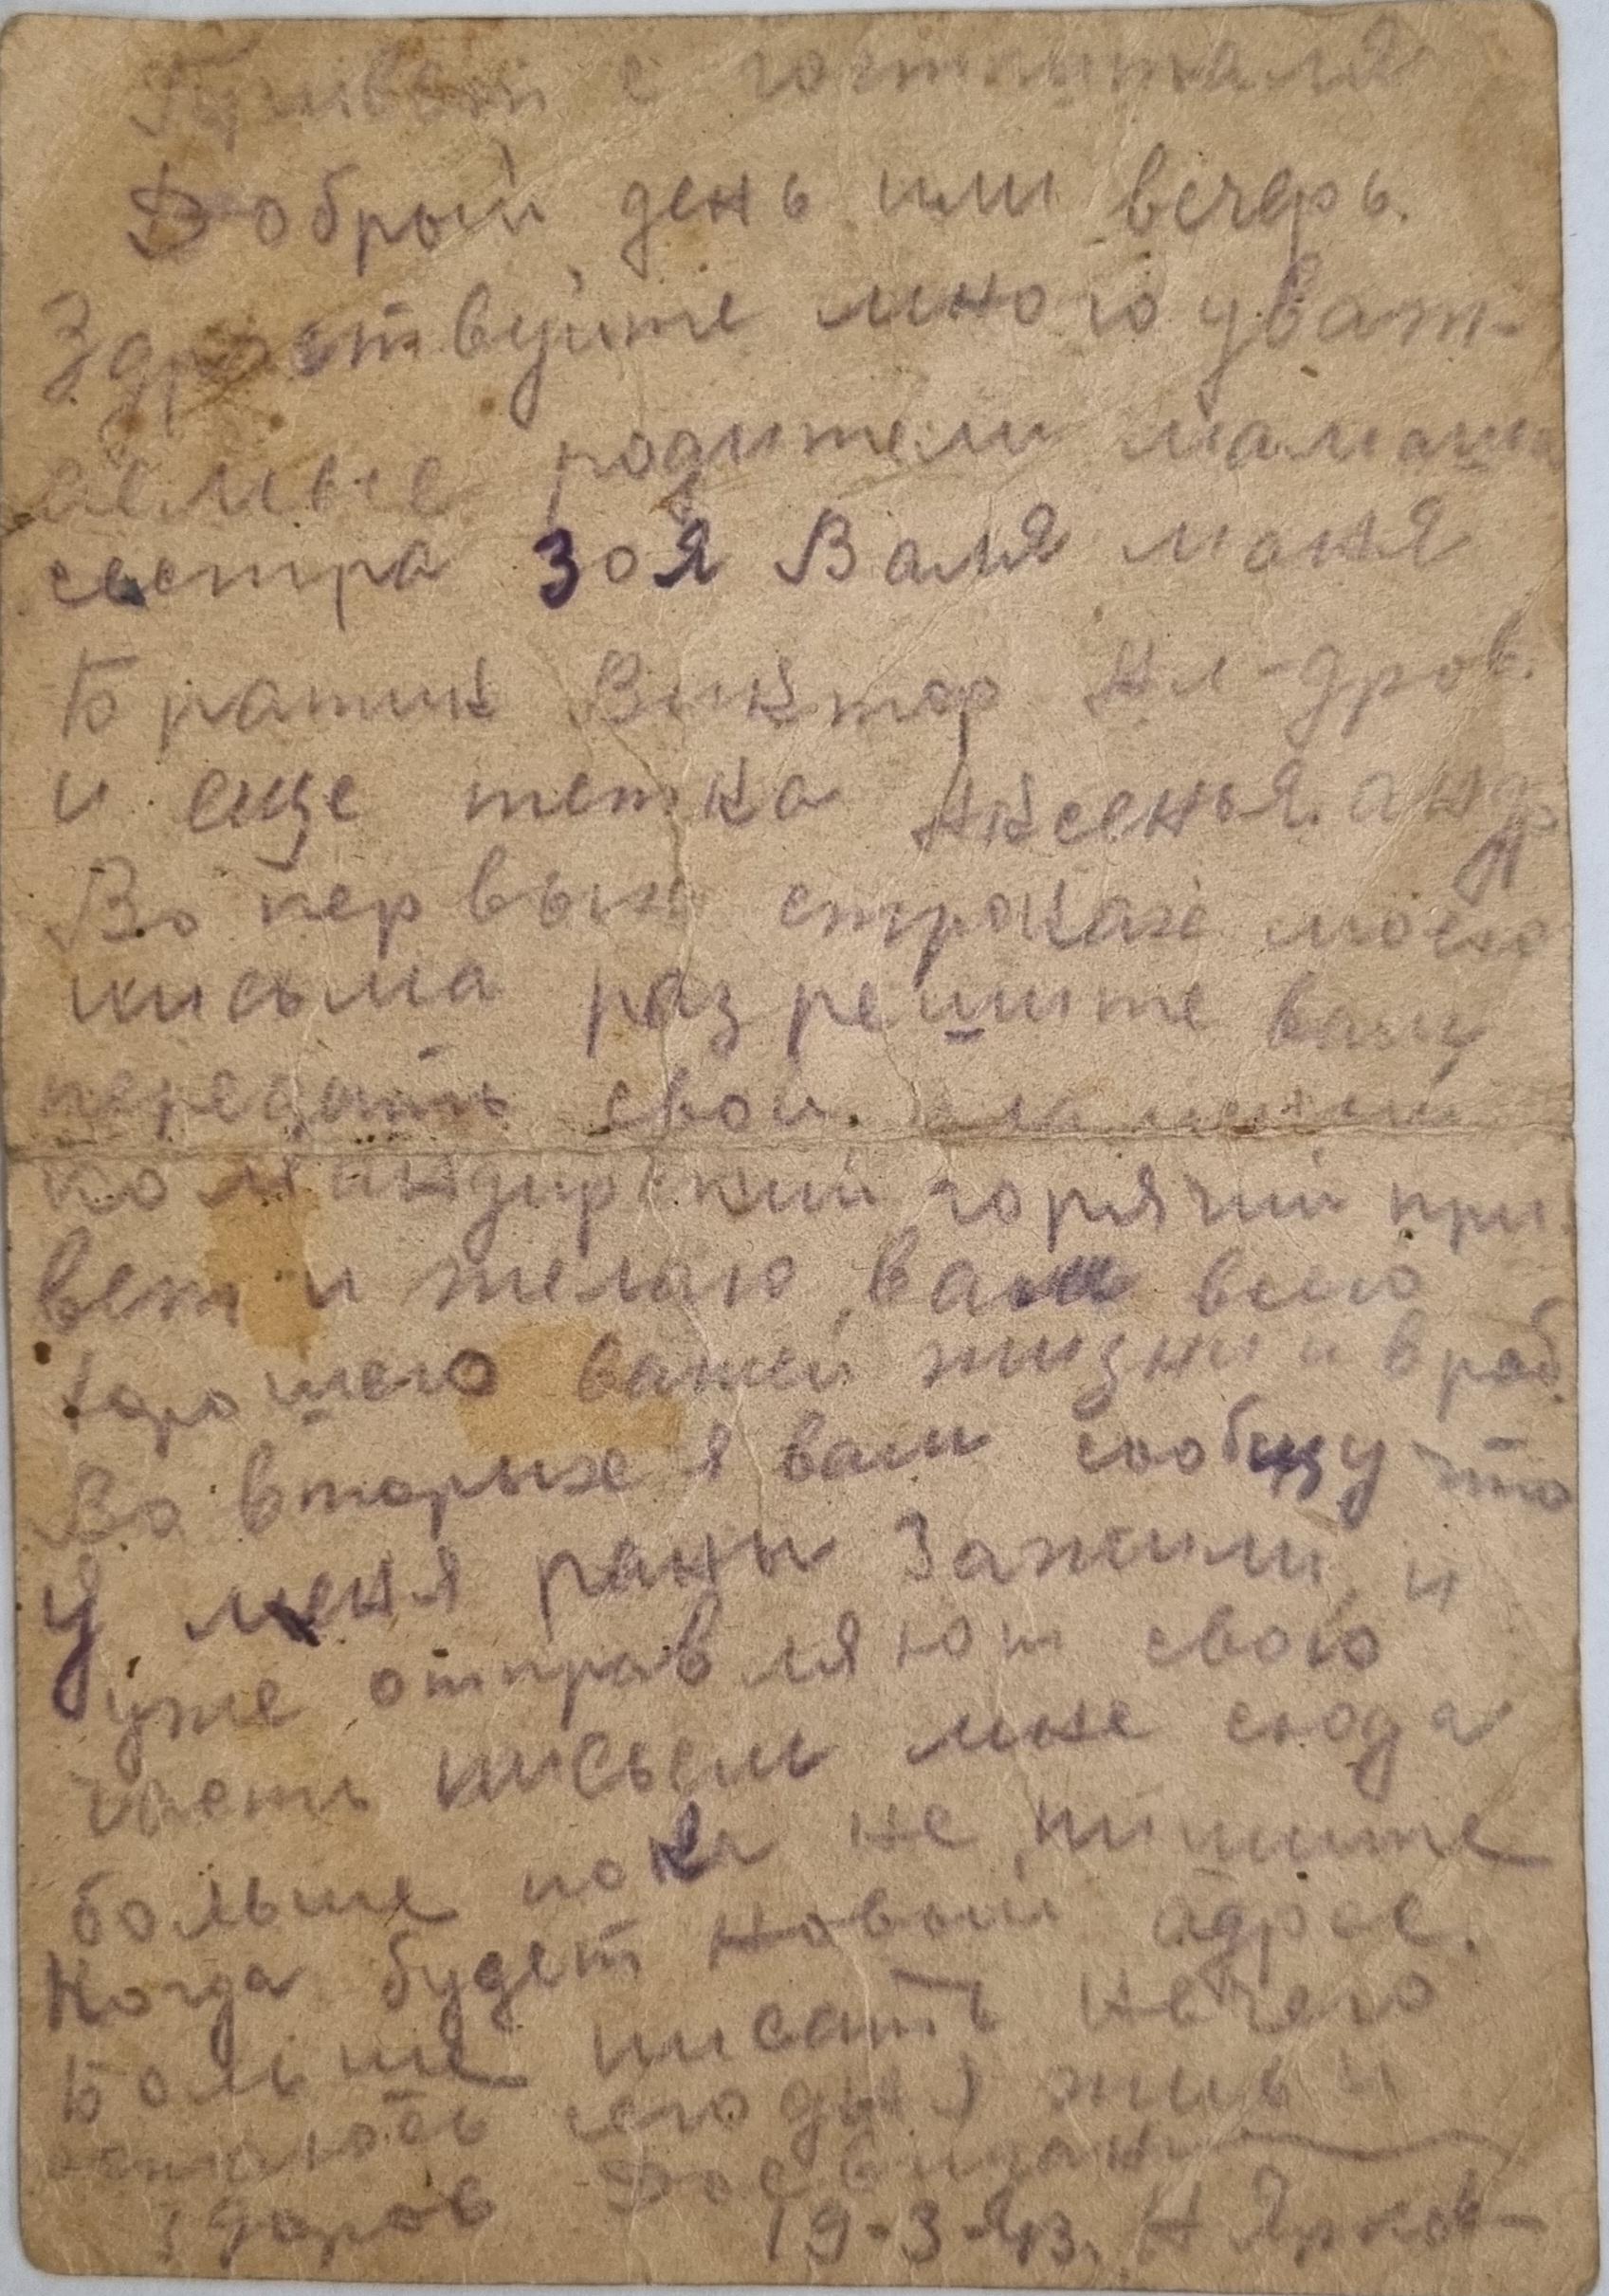 Привет с гостпиталя
Добрый день или вечерь.
Здраствуйте много уваж-
аемые родители мамаша
сестра Зоя Валя Маня
Братик Виктор Ал-дров.
и еще тетка Аксенья. андр
Во первых строках моего
письма разрешите вам
передать свой пламенный
командирский горячий при
вет и желаю вам всего
хорошего вашей жизни и в раб.
Во вторых я вам сообщу что
У меня раны Зажили и
уже отправляют свою
часть писем мне сюда
больше пока не пишите
Когда будет новый адрес.
Больше писать нечего
остаюсь жив и
здоров Досвидан
19-3-43. Н Ярков